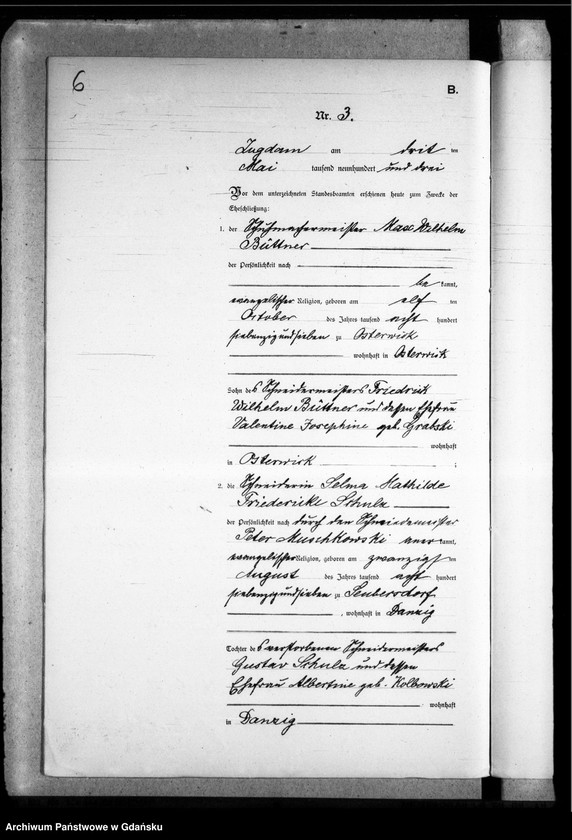 6
B.
Nr. 3.
Zugdam am drit ten
Mai tausend neunhundert und drei
Vor dem unterzeichneten Standesbeamten erschienen heute zum Zwecke der
Eheschließung:
1. der Schuhmachermeister Max Wilhelm
Büttner
der Persönlichkeit nach
be kannt,
evangelischer Religion, geboren am elf ten
October des Jahres tausend acht hundert
siebenzigundsieben zu Osterwick
wohnhaft in Osterwick
Sohn des Schneidermeisters Friedrich
Wilhelm Büttner und dessen Ehefrau
Valentine Josephine geb. Grabski
wohnhaft
in Osterwick ;
2. die Schneiderin Selma Mathilde
Friedericke Schulz
der Persönlichkeit nach durch den Schneidermeister
Peter Muschkowski aner kannt,
evangelischer Religion, geboren am zwanzigs ten
August des Jahres tausend acht hundert
siebenzigundsieben zu Senbersdorf
, wohnhaft in Danzig
Tochter des verstorbenen Schneidermeisters
Gustav Schulz und dessen
Ehefrau Albertine geb. Kolbowski
wohnhaft
in Danzig
Archiwum Państwowe w Gdańsku